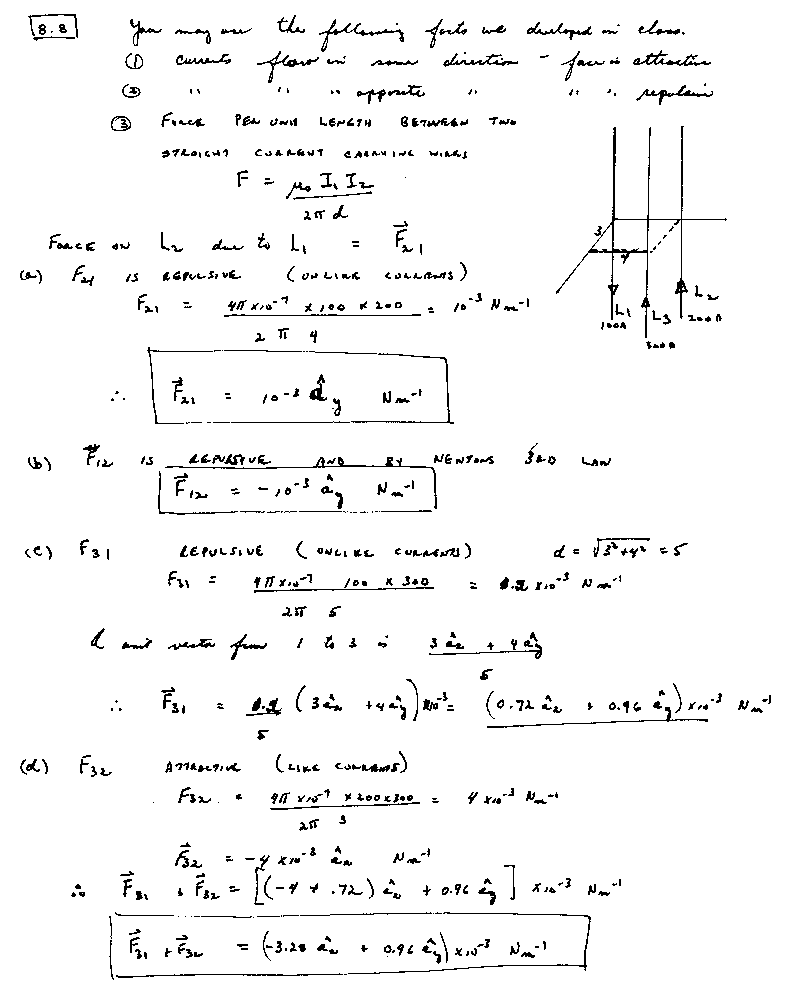 8.8 You may use the following facts we developed in class.
(1) currents flow in same direction - force is attractive
(2) " " " opposite " " " repulsive
(3) FORCE PER UNIT LENGTH BETWEEN TWO
STRAIGHT CURRENT CARRYING WIRES
F = μ₀ I₁ I₂ / 2π d
3
4
L₁
100A
L₃
300A
L₂
200A
FORCE ON L₂ due to L₁ = F⃗₂₁
(a) F₂₁ IS REPULSIVE (UNLIKE CURRENTS)
F₂₁ = 4π x10⁻⁷ x 100 x 200 / 2 π 4 = 10⁻³ Nm⁻¹
∴ F⃗₂₁ = 10⁻³ â_y Nm⁻¹
(b) F⃗₁₂ IS REPULSIVE AND BY NEWTONS 3RD LAW
F⃗₁₂ = -10⁻³ â_y Nm⁻¹
(c) F₃₁ REPULSIVE (UNLIKE CURRENTS) d = √3²+4² = 5
F₃₁ = 4π x10⁻⁷ 100 x 300 / 2π 5 = 1.2 x10⁻³ Nm⁻¹
A unit vector from 1 to 3 is 3 âₓ + 4 â_y / 5
∴ F⃗₃₁ = 1.2 / 5 (3 âₓ + 4 â_y) x10⁻³ = (0.72 âₓ + 0.96 â_y) x10⁻³ Nm⁻¹
(d) F₃₂ ATTRACTIVE (LIKE CURRENTS)
F₃₂ = 4π x10⁻⁷ x 200x300 / 2π 3 = 4 x10⁻³ Nm⁻¹
F⃗₃₂ = -4 x10⁻³ âₓ Nm⁻¹
∴ F⃗₃₁ + F⃗₃₂ = [(-4 + .72) âₓ + 0.96 â_y] x10⁻³ Nm⁻¹
F⃗₃₁ + F⃗₃₂ = (-3.28 âₓ + 0.96 â_y) x10⁻³ Nm⁻¹